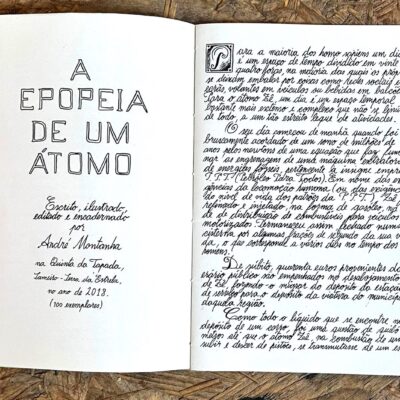 A
EPOPEIA
DE UM
ÁTOMO
Escrito, ilustrado,
editado e encadernado
por
André Montanha
na Quinta da Tapada,
Serra da Estrela,
no ano de 2013.
(100 exemplares)
Para a maioria dos homo sapiens um dia
é um espaço de tempo dividido em vinte
quatro horas, na maioria das quais os
se deixam embalar por coisas como redes sociais
volantes em veículos ou bebidas em
Para o átomo Zé, um dia é um espaço temporal
bastante mais extenso e complexo que não se
de todo, a um tão estrito leque de atividades.
O seu dia começou de manhã quando foi
bruscamente acordado de um sono de milhões de
anos pelos nervos de uma equação que faz
as engrenagens de uma máquina
de energias fósseis, pertencente à insigne
T.P.T. (Petróleo Para Todos). Em nome das
da locomoção humana (ou das
do nível de vida dos patrões da P.P.T.) Zé
refinado e injetado, na forma de gasóleo,
de distribuição de combustíveis para veículos
motorizados. Permaneceu assim fechado numa
cisterna por algumas frações de segundo da sua
da, o que corresponde a vários dias no tempo dos
homens.
De súbito, quarenta euros provenientes do
erário público são empenhados no desalojamento
de Zé, forçando-o migrar do deposito da estação
de serviço para o depósito da viatura do
daquela região.
Como todo o líquido que se encontre no
depósito de um carro, foi uma questão de
metros até que o átomo Zé, na combustão de um
subir e descer de pistões, se transmutasse de um